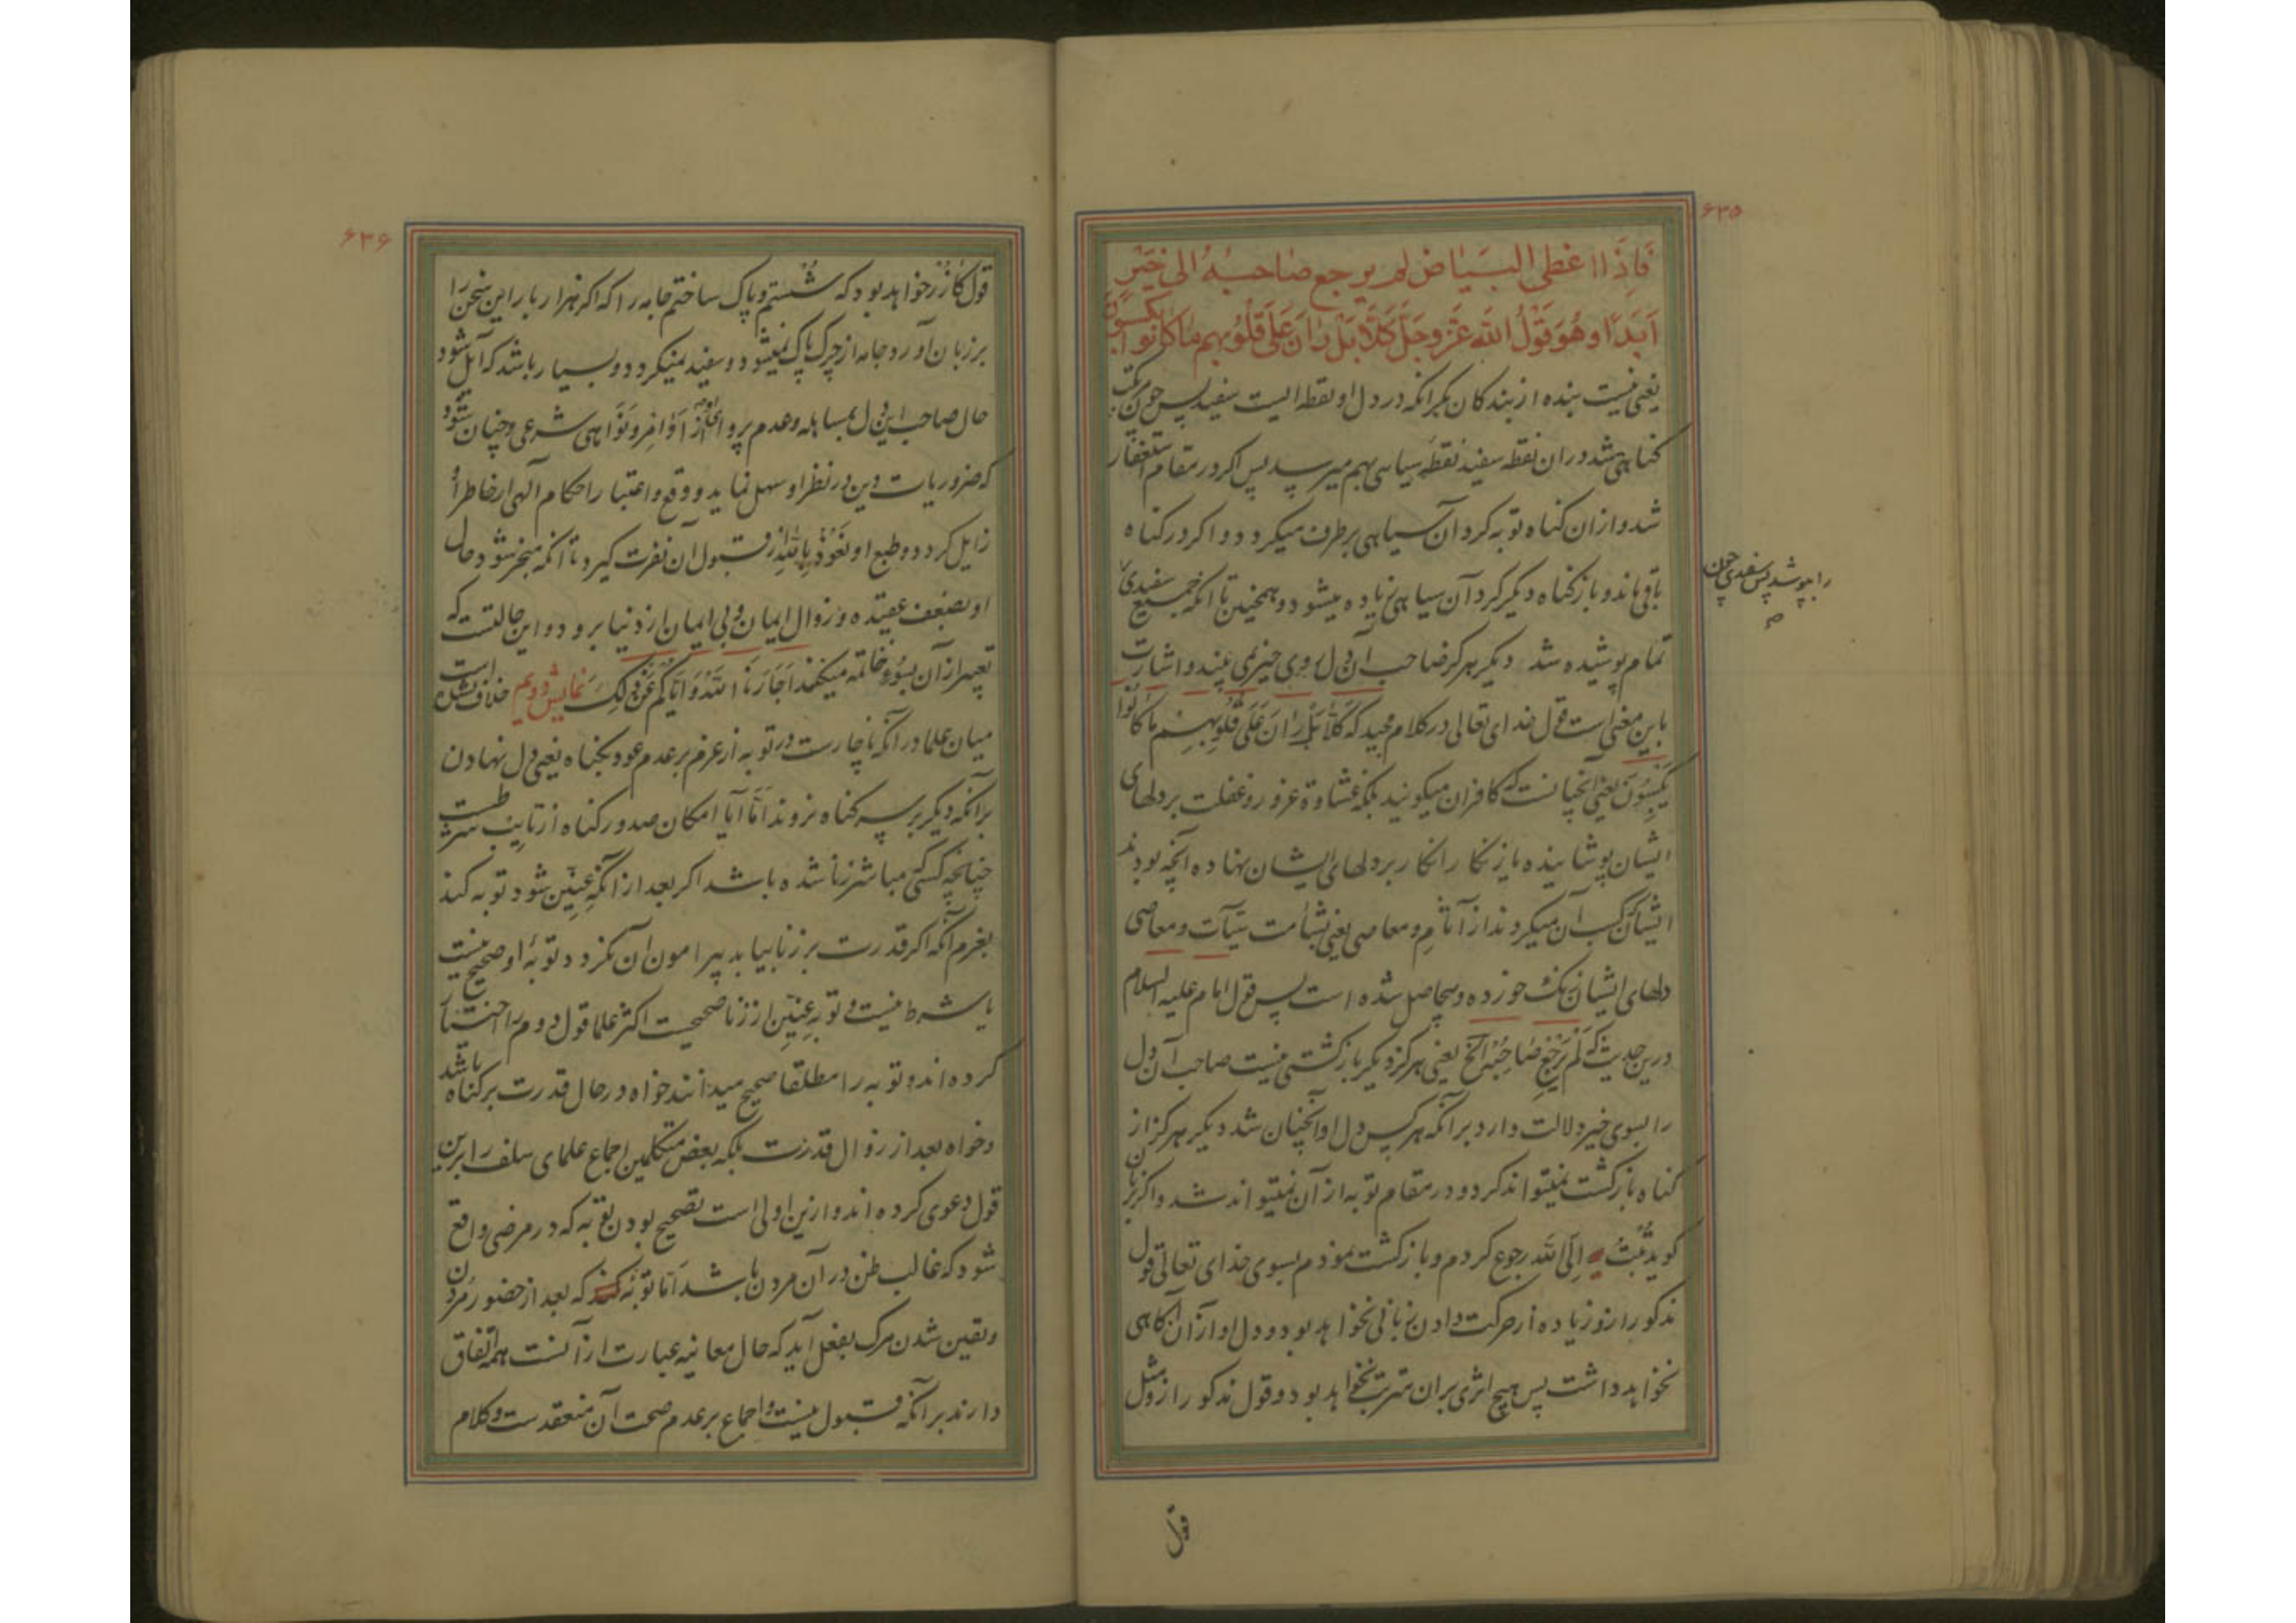 ۶۳۵
فَاِذَا اغطی البَیٰاض لم یرجع صٰاحبهُ الی خَیْرٍ
اَبَدًا و هُوَ قَوْلُ اللّه عَزّ و جَلّ کَلّا بَلْ رٰانَ عَلیٰ قُلُوبِهِم مٰا کٰانوا یکسبون
یعنی نیست بنده از بندکان مکر انکه در دل او نقطه الیست سفید پس چون مرتکب
کناهی شد در ان نقطه سفید نقطهٔ سیاهی بهم میرسد پس اکر در مقام استغفار
شد و از ان کناه توبه کرد آن سیاهی برطرف میکردد و اکر در کناه
باقی ماند و باز کناه دیکر کرد آن سیاهی زیاده میشود و همچنین تا انکه جمیع سفیدی
را بپوشد پس سفیدی چون
تمام پوشیده شد دیکر هرکز صاحب آن دل روی خیر نمی بیند و اشارت
باین معنی است قول خدای تعالی در کلام مجید که کَلّا بَلْ رٰانَ عَلیٰ قُلُوبِهِم مٰا کٰانُوا
یَکْسِبُونَ یعنی آنچنانست که کافران میکویند بلکه غشاوهٔ غرور و غفلت بر دلهای
ایشان پوشانیده یا زنکار انکار بر دلهای ایشان نهاده آنچه بودند
ایشان که کسب آن میکردند از آثام و معاصی یعنی بشأمت سیّآت و معاصی
دلهای ایشان زنک خورده و بیحاصل شده است پس قول امام علیه السلام
درین حدیث که لَمْ یَرْجِعْ صٰاحِبُهُ الخ یعنی هرکز دیکر بازکشتی نیست صاحب آن دل
را بسوی خیر دلالت دارد بر آنکه هر کس دل او آنچنان شد دیکر هرکز از
کناه بازکشت نمیتواند کرد و در مقام توبه از آن نمیتواند شد و اکر بزبان
کوید تُبْتُ اِلَی اللّه رجوع کردم و بازکشت نمودم بسوی خدای تعالی قول
مذکور از و زیاده از حرکت دادن زبانی نخواهد بود و دل او از آن آکاهی
نخواهد داشت پس هیچ اثری بران مترتب نخواهد بود و قول مذکور ازو مثل
قول
۶۳۶
قول کازُر خواهد بود که شُستم و پاک ساختم جامه را که اکر هزار بار این سخن را
بر زبان آورد جامه از چرک پاک نمیشود و سفید نمیکردد و بسیار باشد که آیل شود
حال صاحب این دل بمساهله و عدم پروای از اَوٰامِر و نَوٰاهی شرعی و چنان شود
که ضروریات دین در نظر او سهل نماید و وقع و اعتبار احکام آلهی از خاطر او
زایل کردد و طبع او نَعُوذُ بِاللّهِ از قبول آن نفرت کیرد تا انکه منجر شود حال
او بضعف عقیده و زوال ایمان و بی ایمان از دنیا برود و این حالتست که
تعبیر از آن بسُوء خاتمه میکنند اَجٰارَنَا اللّهُ وَ اِیّاکُم عَنْ ذٰلِکَ نمایش دویم خلافست
میان علما در آنکه ناچارست در توبه از عزم بر عدم عود بکناه یعنی دل نهادن
بر آنکه دیکر بر سر کناه نروند امّا آیا امکان صدور کناه از تایب شرطست
چنانچه کسی مباشر زنا شده باشد اکر بعد از آنکه عِنّین شود توبه کند
بعزم آنکه اکر قدرت بر زنا بیابد پیرامون آن نکردد توبهٔ او صحیح نیست
یا شرط نیست و توبهٔ عِنّین از زنا صحیحست اکثر علما قول دوم را اختیار
کرده اند و توبه را مطلقا صحیح میدانند خواه در حال قدرت بر کناه باشد
و خواه بعد از زوال قدرت بلکه بعض متکلّمین اجماع علمای سلف را برین
قول دعوی کرده اند و ازین اولی است تصحیح بودن توبه که در مرضی واقع
شود که غالب ظن در آن مردن باشد امّا توبهٔ که بعد از حضور مُردن
و یقین شدن مرک بفعل آید که حال معاینه عبارت از آنست همه اتفاق
دارند بر آنکه قبول نیست و اجماع بر عدم صحت آن منعقد ست و کلام